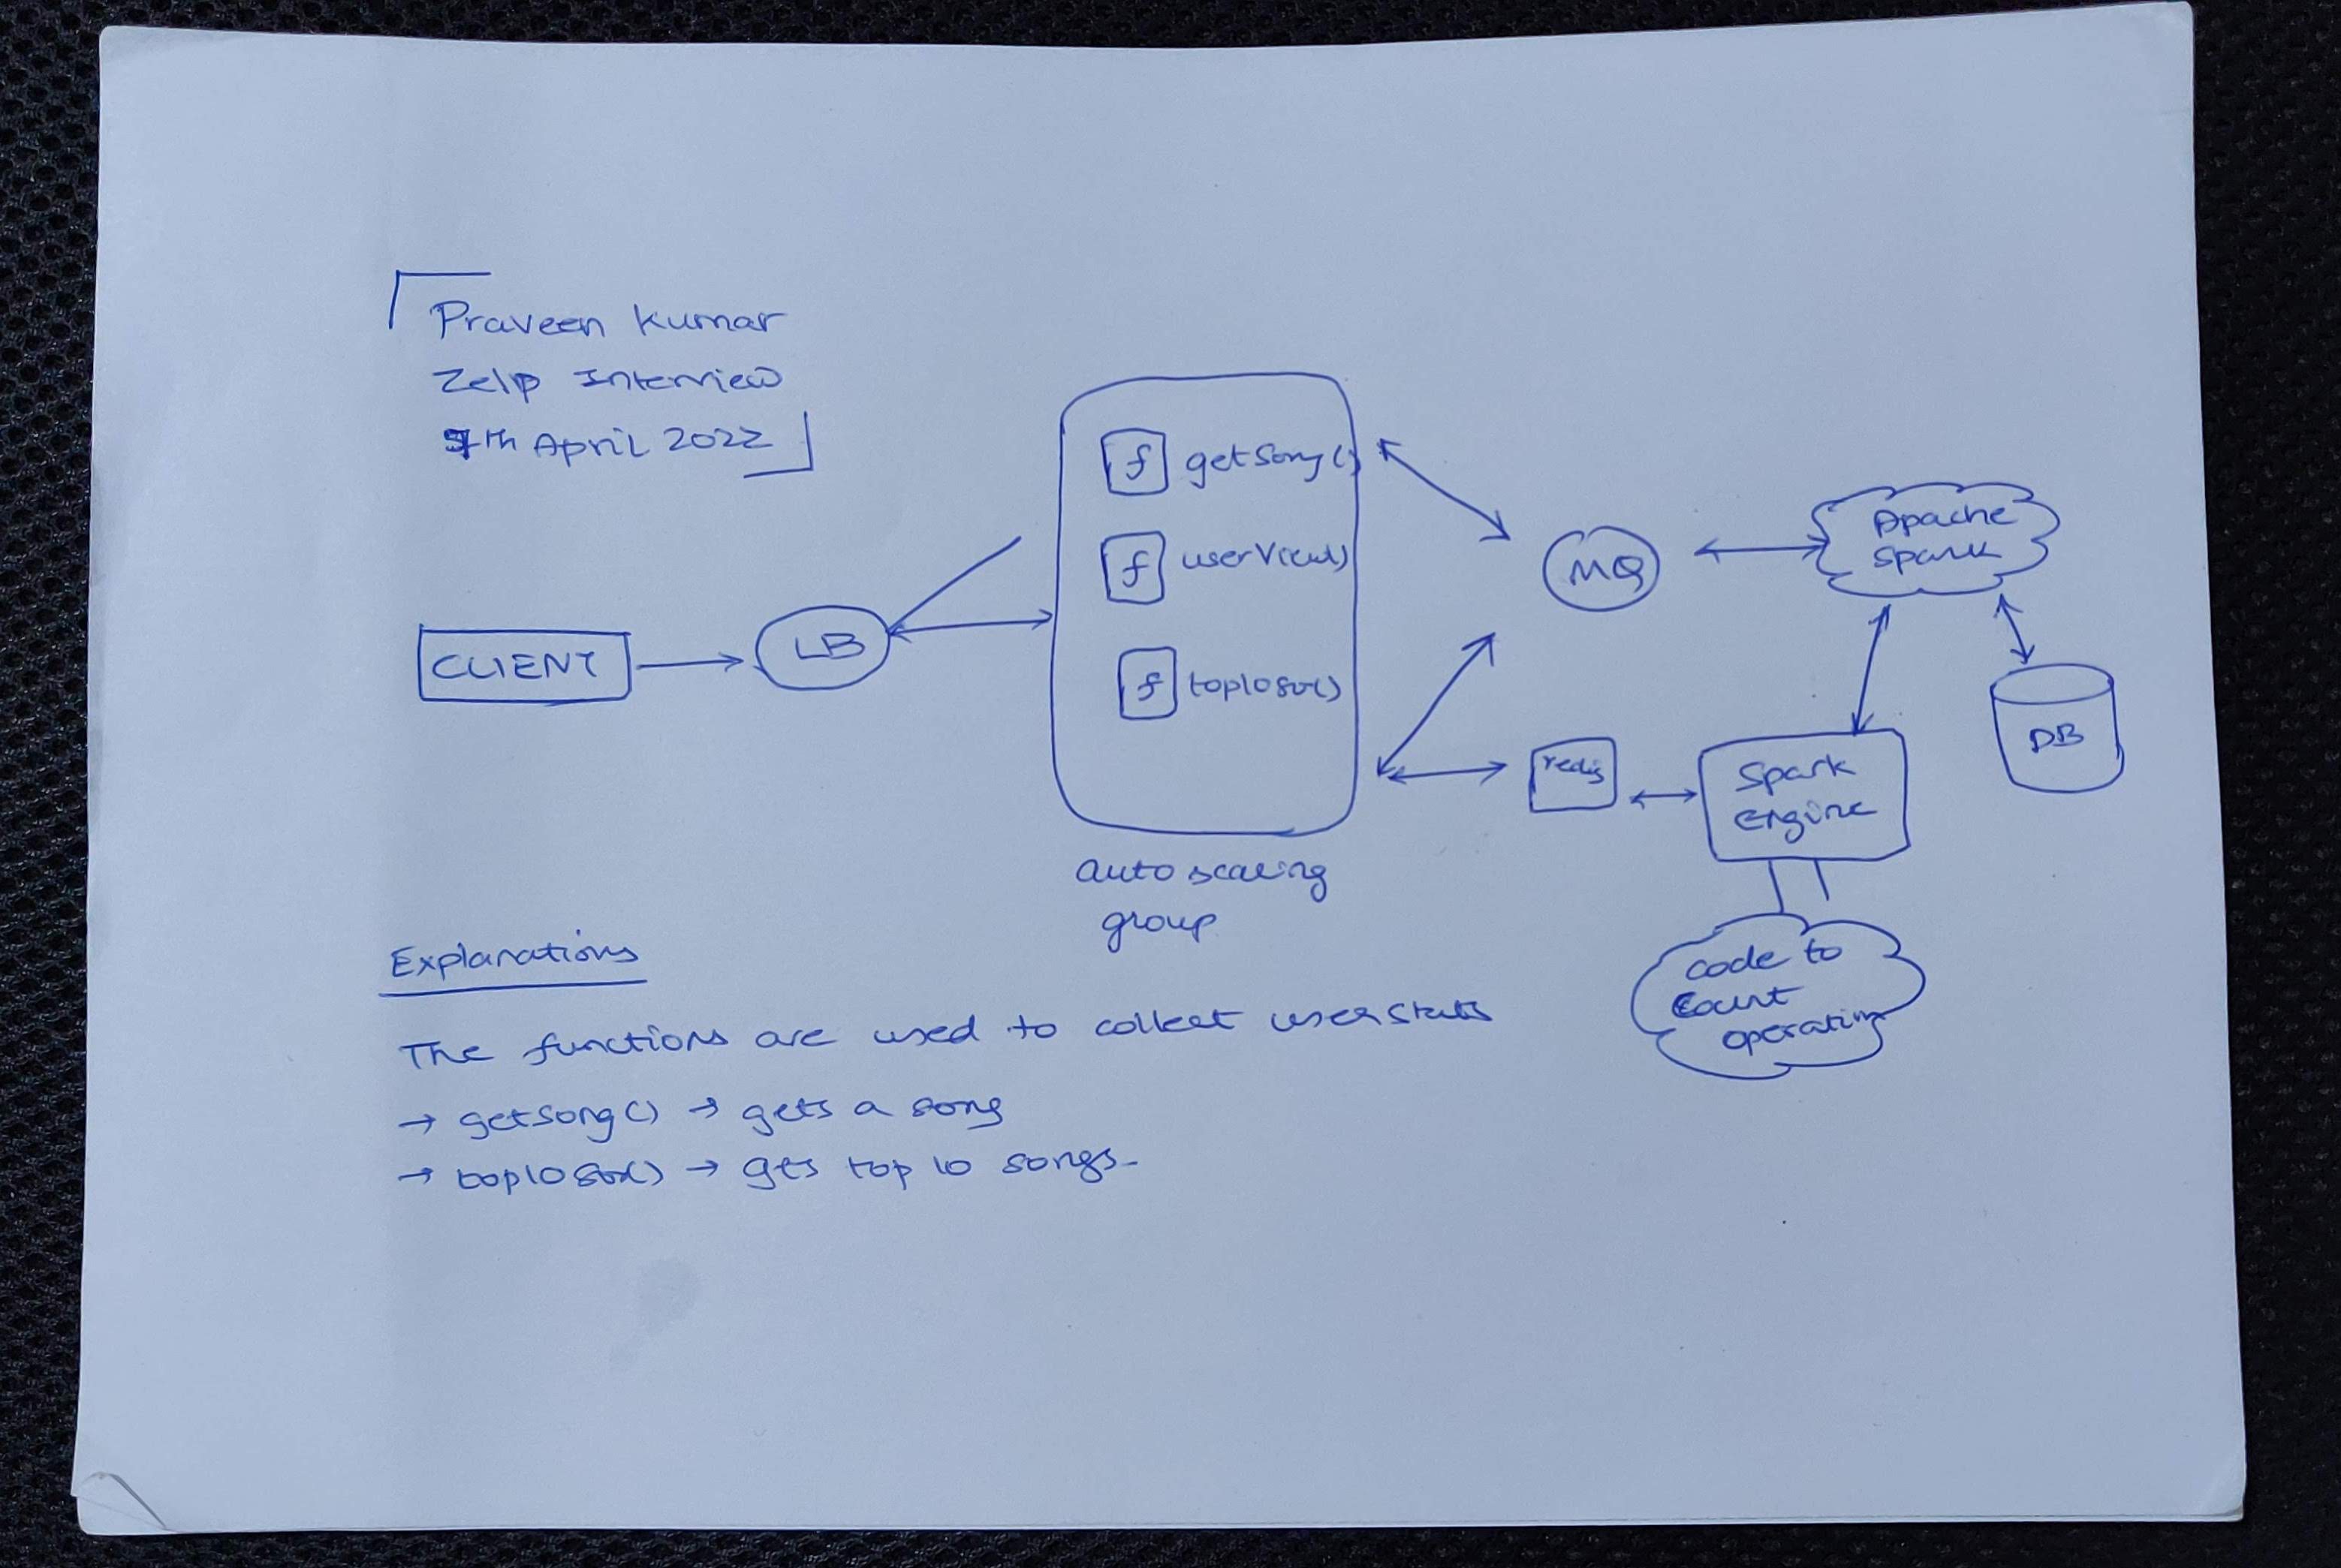 Praveen Kumar
Zelp Interview
7th April 2022
CLIENT
LB
f getSong()
f userView()
f top10
Auto scaling
group
MQ
Apache
Spark
redis
Spark
Engine
DB
code to
count
operating
Explanations
The functions are used to collect user stats
→ getSong() → gets a song
→ top10 → gets top 10 songs.